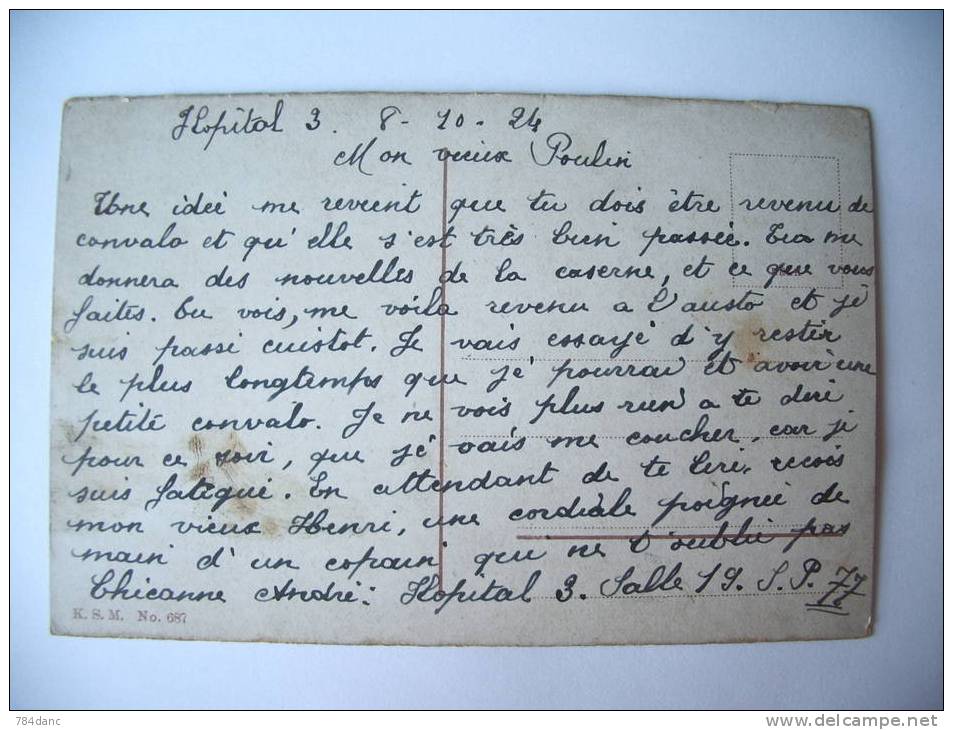 Hopital 3. 8-10-24
Mon vieux Poulin
Une idée me revient que tu dois être revenu de
convalo et qu'elle s'est très bien passée. Tu me
donnera des nouvelles de la caserne, et ce que vous
faites. Tu vois, me voila revenu a l'austo et jé
suis passé cuistot. Je vais essayé d'y restér
le plus longtemps que jé pourrai et avoir une
petité convalo. Je ne vois plus rien a te diré
pour ce soir, que jé vais me coucher, car jé
suis fatigué. En attendant de te liré, recois
mon vieux Henri, une cordiale poignée de
main d'un copain qui ne t'oublie pas
Chicanne André: Hopital 3. Salle 19. S.P. 77
K. S. M. No. 687
784danc
www.delcampe.net